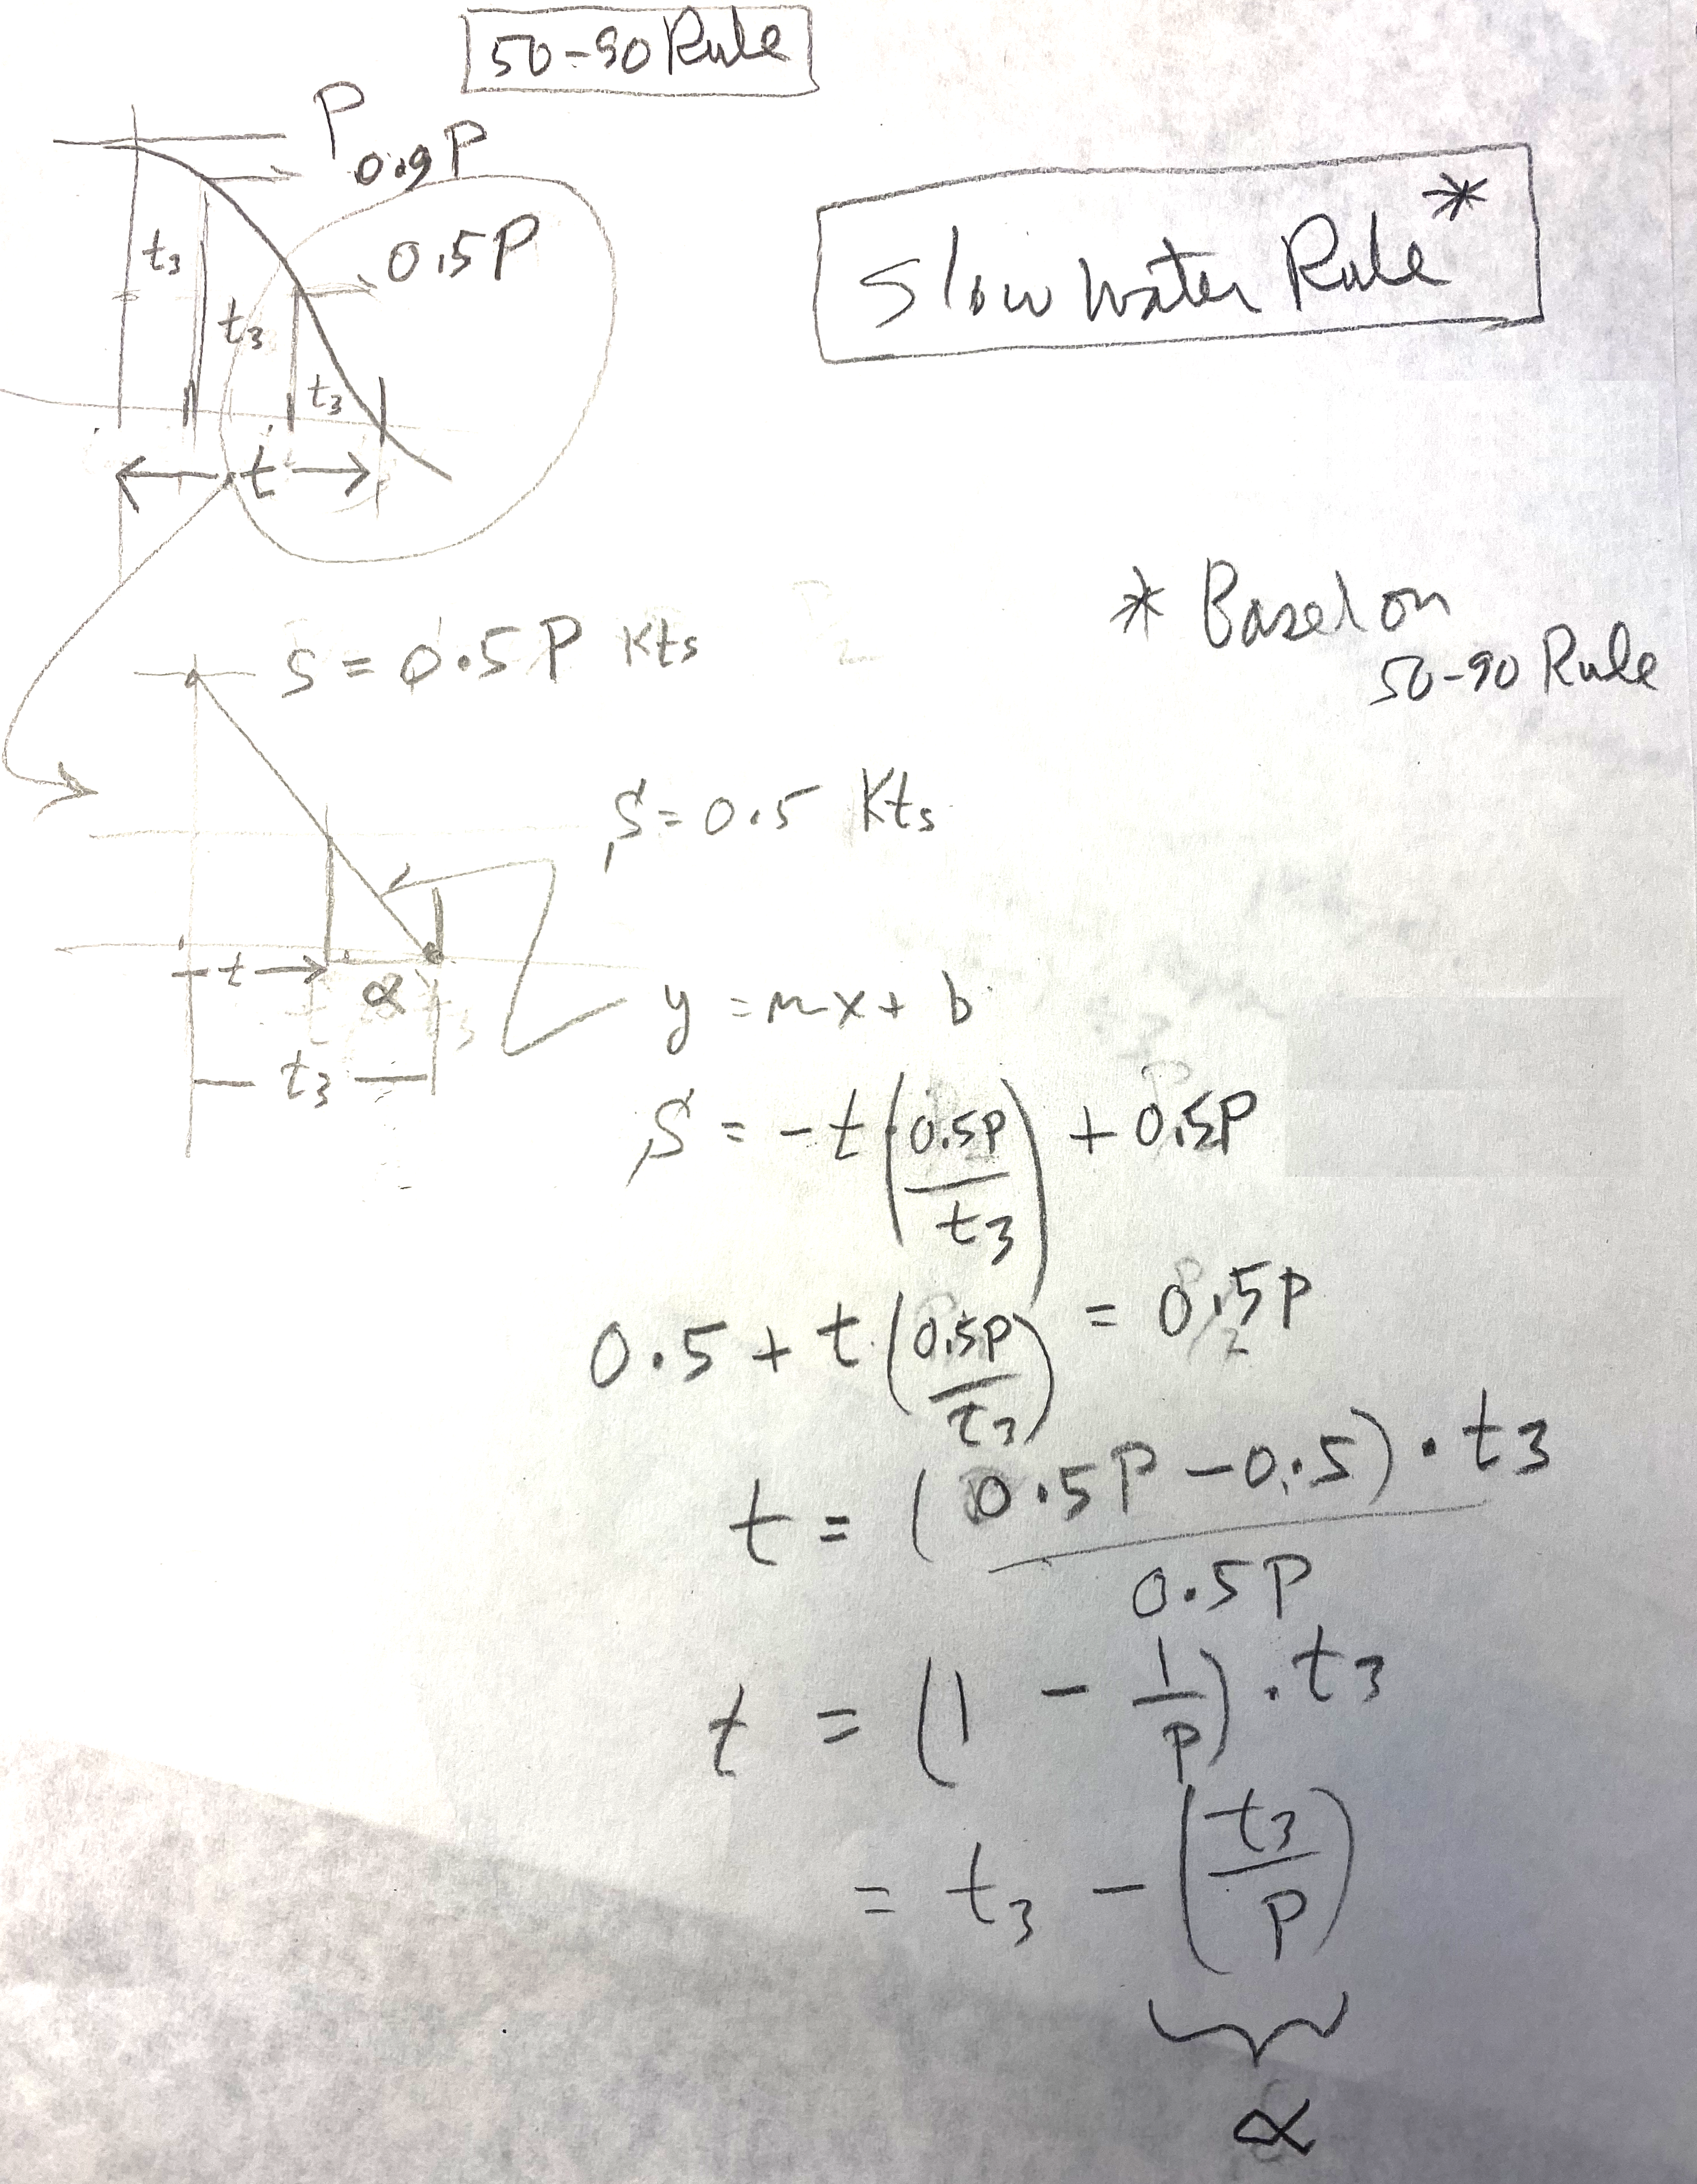 50-90 Rule
P
0.9P
t3
0.5P
t3
t3
t
Slow Water Rule*
* Based on
50-90 Rule
S = 0.5P Kts
S = 0.5 Kts
t
α
t3
y = mx + b
S = -t (0.5P / t3) + 0.5P
0.5 + t (0.5P / t3) = 0.5P
t = (0.5P - 0.5) · t3 / 0.5P
t = (1 - 1/P) · t3
= t3 - (t3 / P)
α